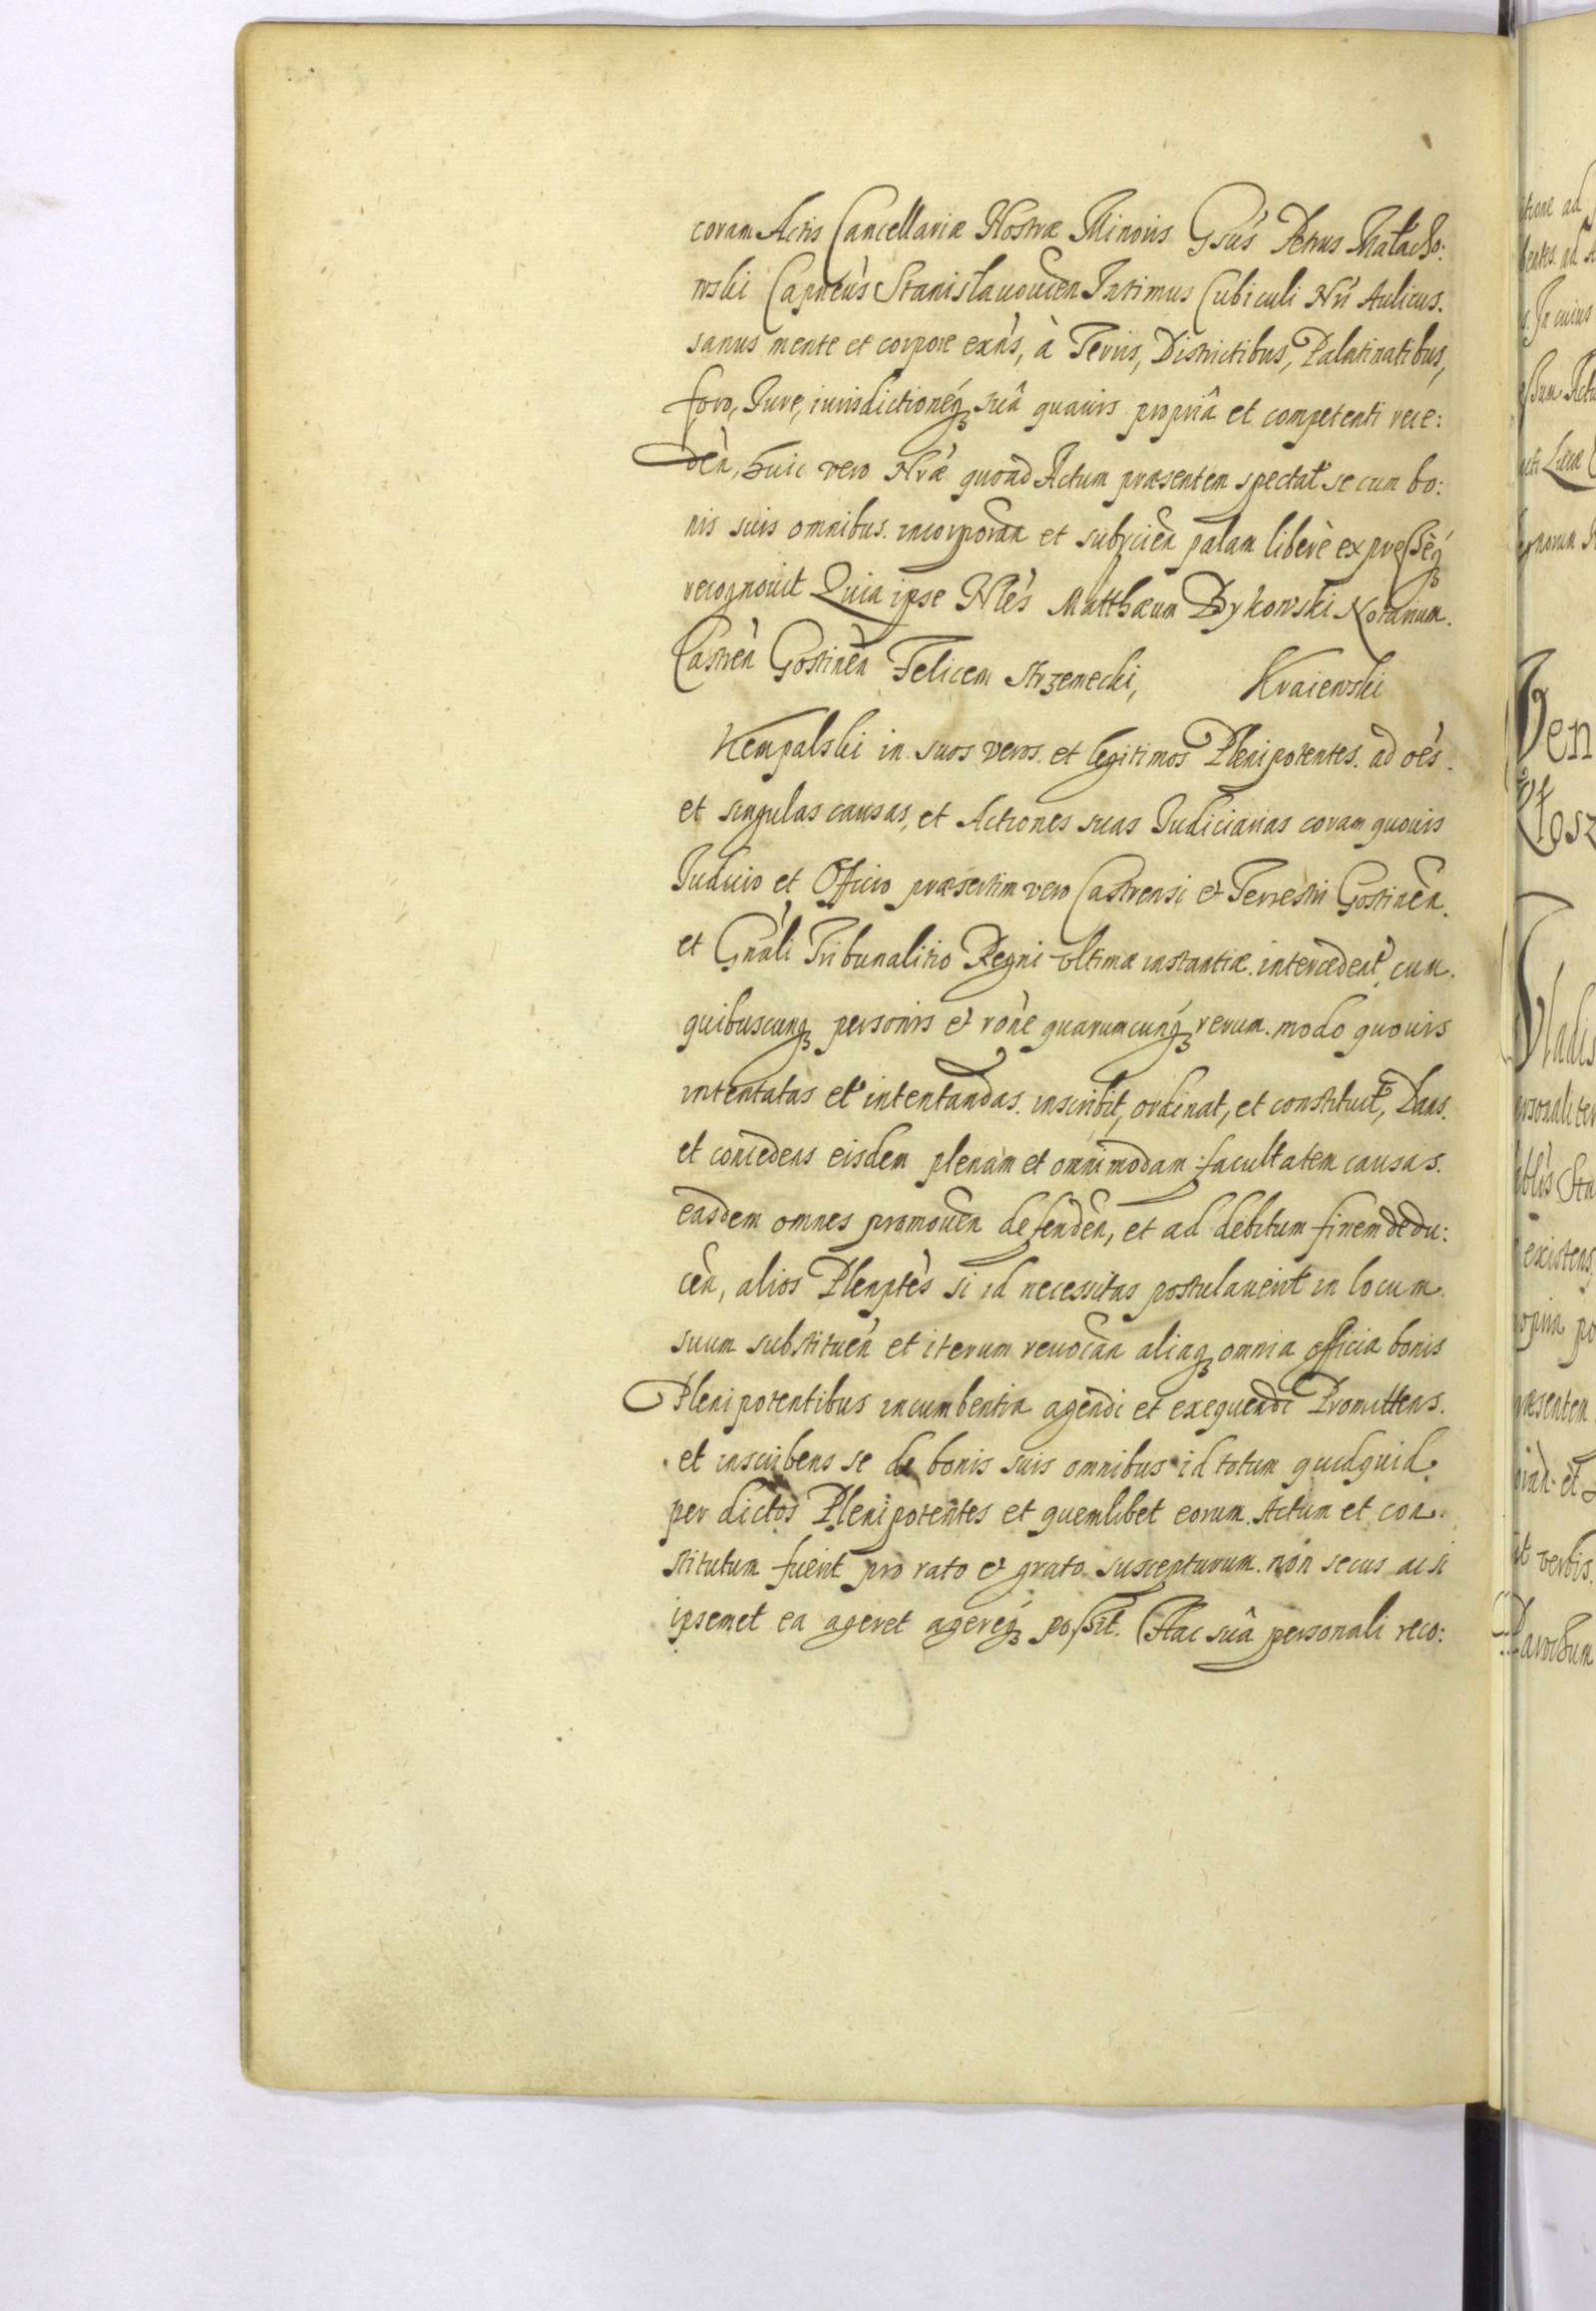 coram Actis Cancellariæ Nostræ Minoris Gsus Petrus Małacho:
wski Capneus Stanisłauouien Intimus Cubiculi Nri Aulicus.
sanus mente et corpore exns, à Terris, Districtibus, Palatinatibus,
foro, Iure, iurisdictioneq suâ quauis propriâ et competenti rece:
den, huic vero Nræ quoad Actum præsentem spectat se cum bo:
nis suis omnibus incorporan et subycien palam liberè expresseq
recognouit Quia ipse Nles Matthæum Bykowski Notarium
Castren Gostinen Felicem Strzemecki, Kraiewski
Kempalski in suos veros et legitimos Plenipotentes ad oes
et singulas causas, et Actiones suas Iudiciarias coram quouis
Iudicio et Officio præsertim vero Castrensi et Terrestri Gostinen
et Gnali Tribunalitio Regni vltimæ instantiæ intercedent, cum
quibuscunq personis et rone quarumcunq rerum modo quouis
intentatas et intentandas inscribit, ordinat, et constituit, Dans
et concedens eisdem plenam et omnimodam facultatem causas
easdem omnes promouen defenden, et ad debitum finem dedu:
cen, alios Plenptes si id necessitas postulauerit in locum
suum substituen et iterum reuocan aliaq omnia officia bonis
Plenipotentibus incumbentia agendi et exequendi Promittens
et inscribens se de bonis suis omnibus id totum quidquid
per dictos Plenipotentes et quemlibet eorum Actum et con
stitutum fuerit pro rato et grato suscepturum non secus ac si
ipsemet ea ageret agereq possit. Hac suâ personali reco: